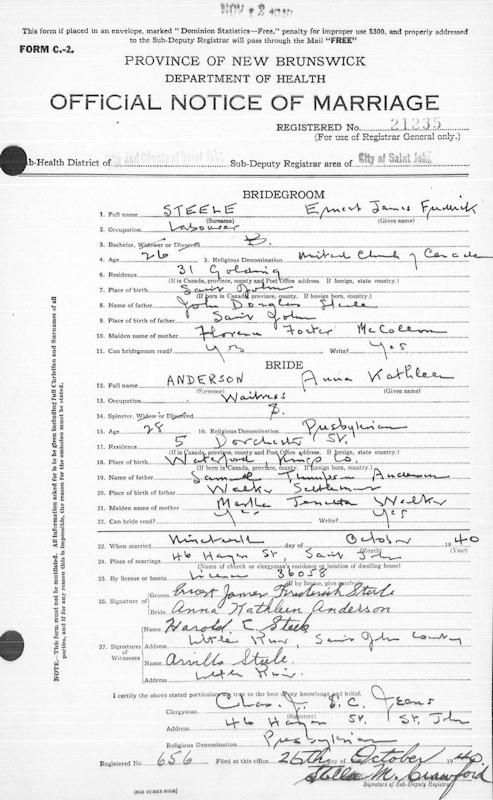 NOV 2 1940
This form if placed in an envelope, marked "Dominion Statistics—Free," penalty for improper use $300, and properly addressed
to the Sub-Deputy Registrar will pass through the Mail "FREE"
FORM C.-2.
PROVINCE OF NEW BRUNSWICK
DEPARTMENT OF HEALTH
OFFICIAL NOTICE OF MARRIAGE
REGISTERED No. 21235
(For use of Registrar General only.)
b-Health District of City and County of Saint John Sub-Deputy Registrar area of City of Saint John
BRIDEGROOM
1. Full name STEELE Ernest James Frederick
(Surname) (Given name)
2. Occupation Labourer
3. Bachelor, Widower or Divorced B.
4. Age 26 5. Religious Denomination United Church of Canada
6. Residence 31 Golding
(If in Canada, province, county and Post Office address. If foreign, state country.)
7. Place of birth Saint John
(If born in Canada, province, county. If foreign born, country.)
8. Name of father John Douglas Steele
9. Place of birth of father Saint John
10. Maiden name of mother Florence Foster McCollom
11. Can bridegroom read? Yes Write? Yes
BRIDE
12. Full name ANDERSON Anna Kathleen
(Surname) (Given name)
13. Occupation Waitress
14. Spinster, Widow or Divorced S.
15. Age 28 16. Religious Denomination Presbyterian
17. Residence 5 Dorchester St.
(If in Canada, province, county and Post Office address. If foreign, state country.)
18. Place of birth Waterford, Kings Co.
(If born in Canada, province, county. If foreign born, country.)
19. Name of father Samuel Thompson Anderson
20. Place of birth of father Walker Settlement
21. Maiden name of mother Martha Walker
22. Can bride read? Yes Write? Yes
23. When married Nineteenth day of October 1940
(Month) (Year)
24. Place of marriage 46 Hazen St., Saint John
(Name of church or clergyman's residence or location of dwelling house)
25. By license or banns License 36058
(If by license, give number)
26. Signature of Groom Ernest James Frederick Steele
Bride Anna Kathleen Anderson
27. Signatures of Witnesses
Name Harold E Steele
Address Little River, Saint John County
Name Arvilla Steele.
Address Little River.
I certify the above stated particulars are true to the best of my knowledge and belief.
Clergyman Chas. J. St. C. Jeans
(Signature)
Address 46 Hazen St. St. John
Religious Denomination Presbyterian
Registered No. 656 Filed at this office. 26th October 1940
Stella M. Crawford
Signature of Sub-Deputy Registrar
[SEE OTHER SIDE]
NOTE.—All information asked for is to be given including full Christian and Surnames of all
parties, and if for any reason this is impossible, the reason for the omission must be stated.
This form must not be mutilated.